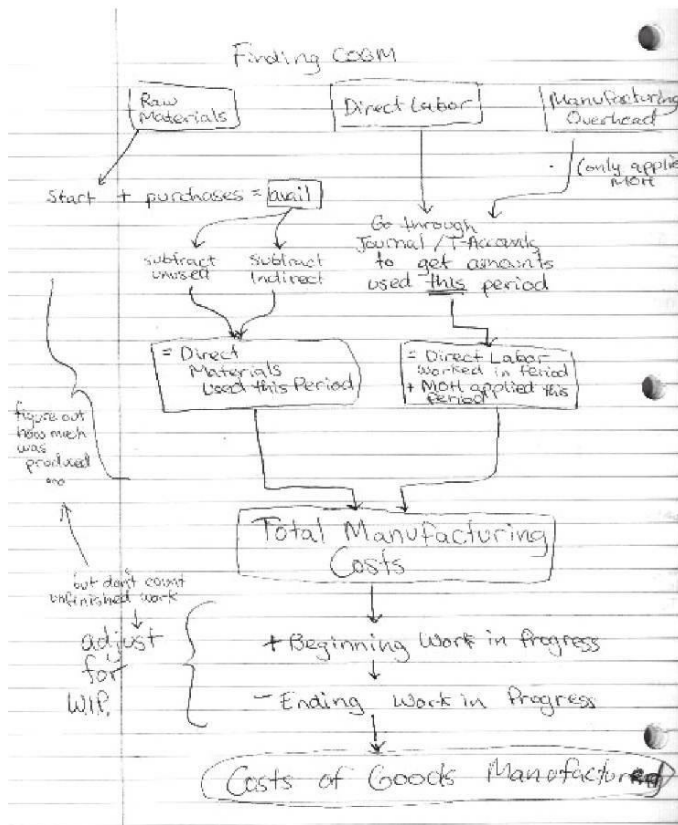 Finding COGM
Raw
Materials
Direct Labor
Manufacturing
Overhead
(only applied
MOH
Start + purchases = avail
Go through
Journal / T-Accounts
to get amounts
used this period
subtract
unused
subtract
Indirect
= Direct
Materials
Used this Period
= Direct Labor
Worked in Period
+ MOH applied this
Period
figure out
how much
was
produced
Total Manufacturing
Costs
but don't count
unfinished work
adjust
for
WIP.
+ Beginning Work in Progress
- Ending Work in Progress
Costs of Goods Manufactured